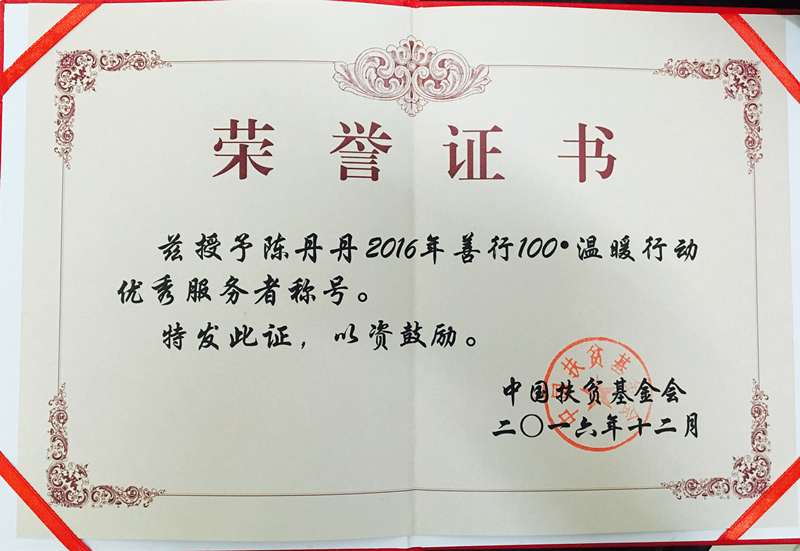 荣誉证书
兹授予陈丹丹2016年善行100•温暖行动
优秀服务者称号。
特发此证，以资鼓励。
中国扶贫基金会
二〇一六年十二月